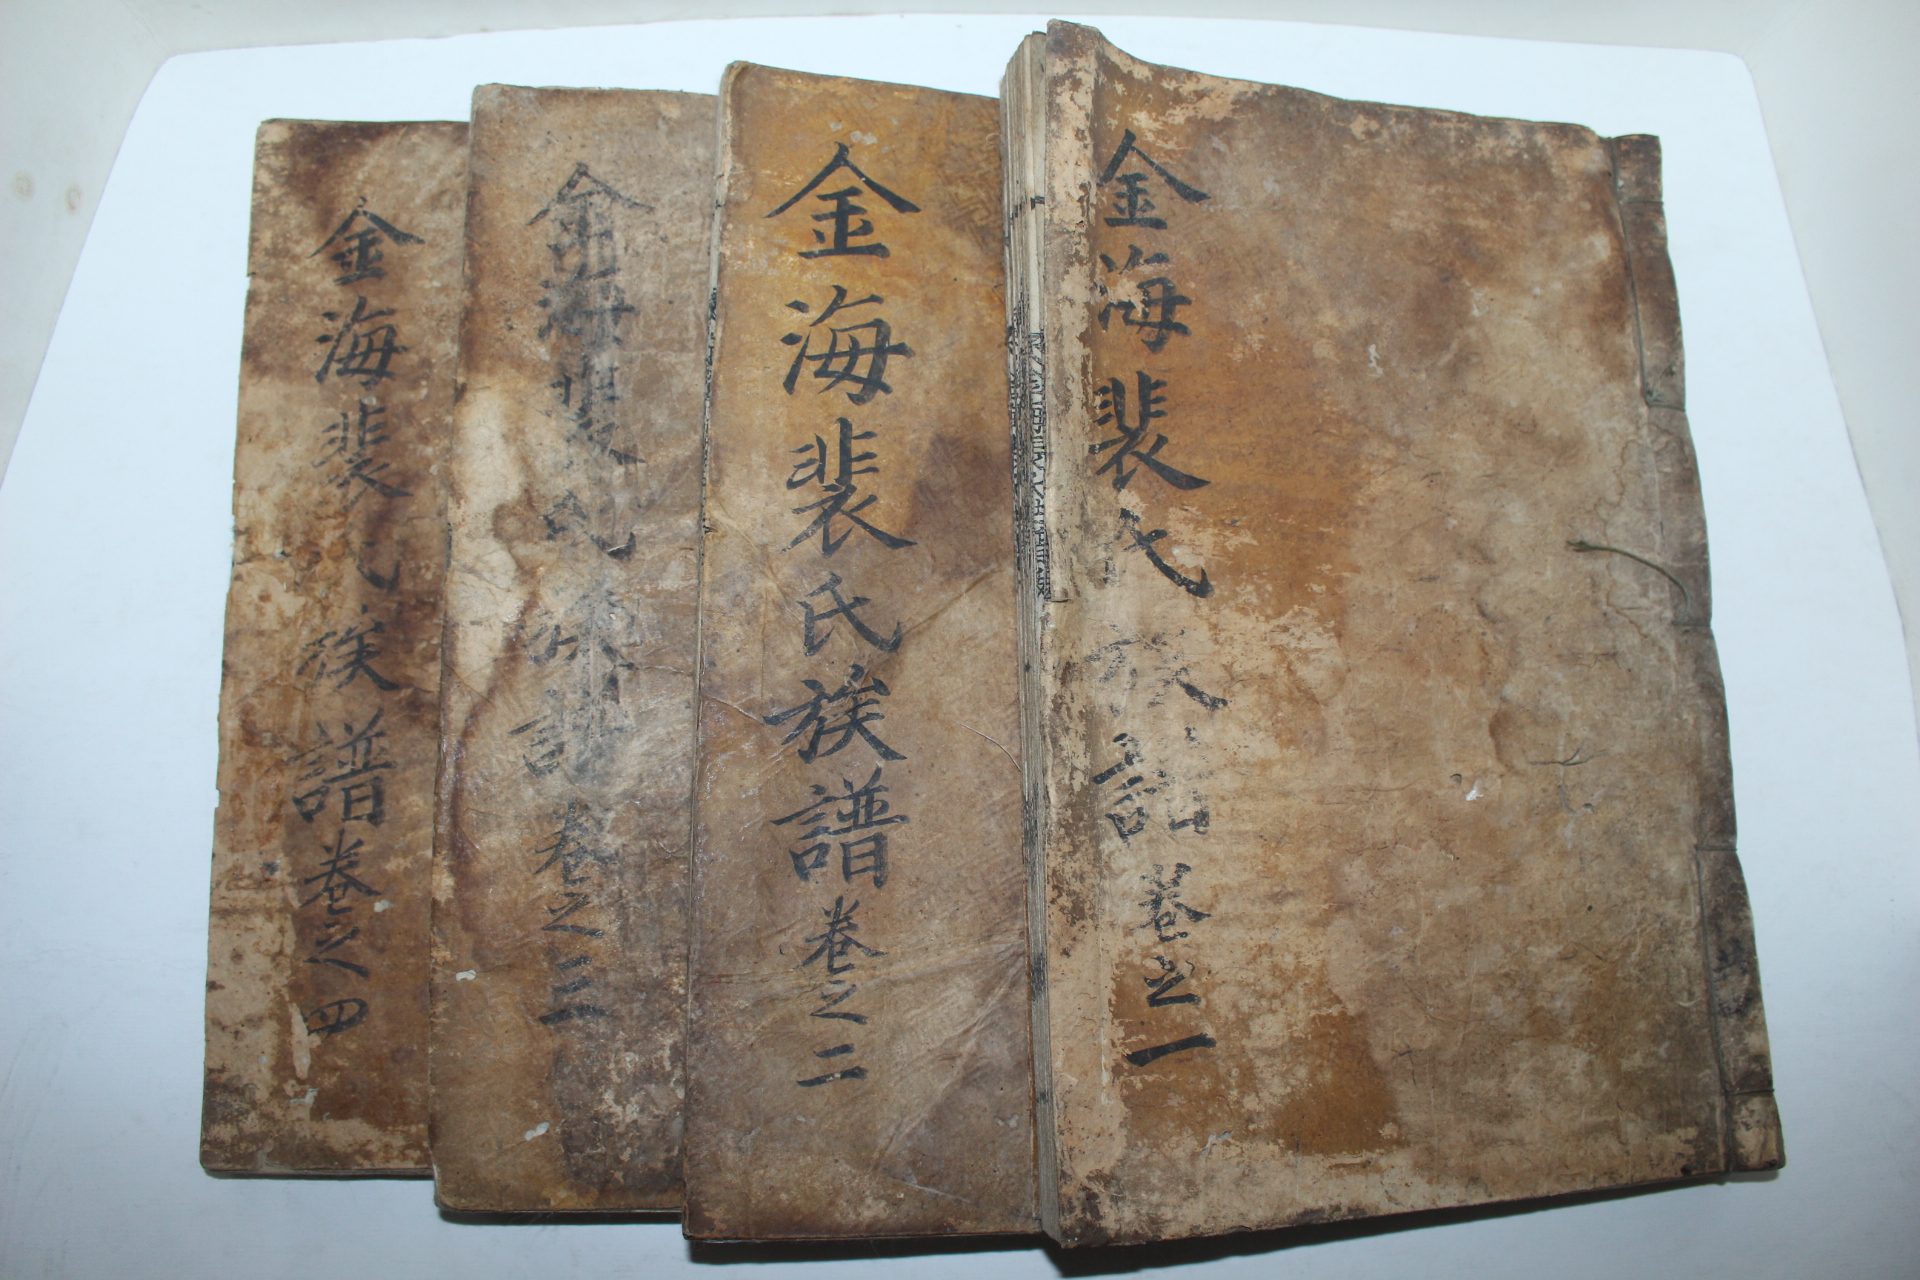 金海裴氏族譜卷之一
金海裴氏族譜卷之二
金海裴氏族譜卷之三
金海裴氏族譜卷之四